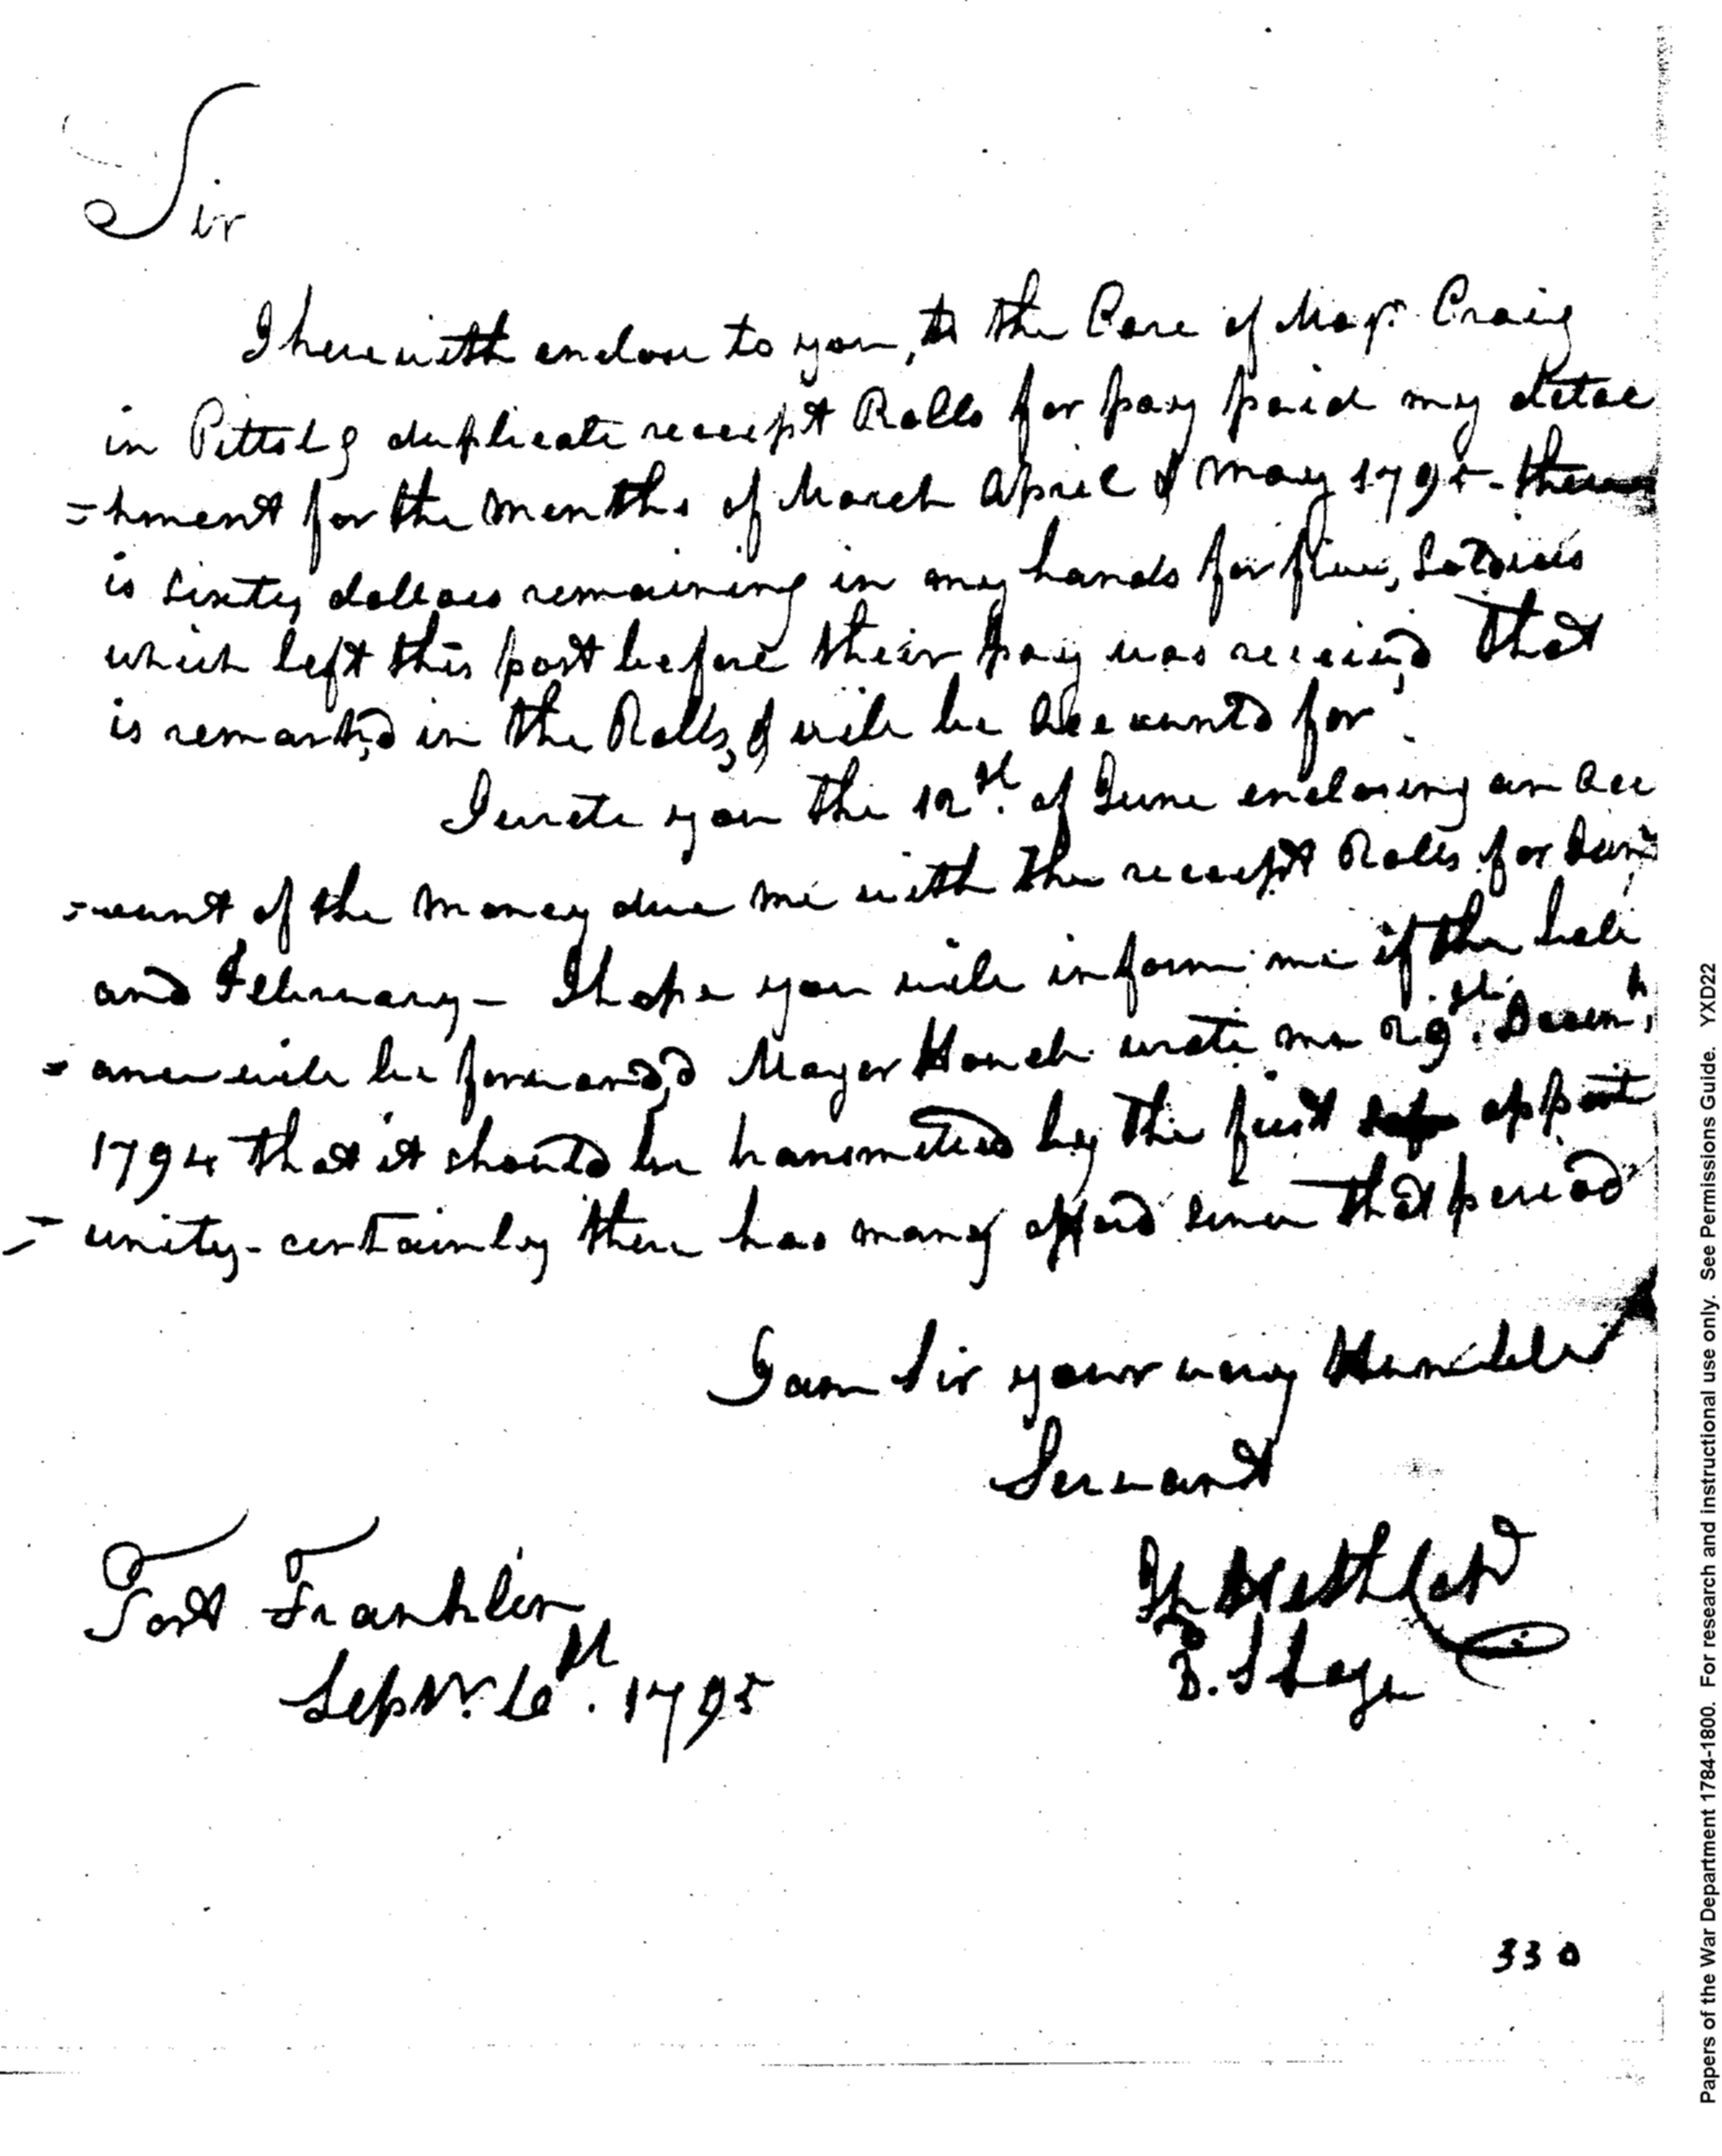 Sir
I herewith enclose to you, to the Care of Majr. Craig
in Pittsbg duplicate receipt Rolls for pay paid my detac
=hment for the months of March April & May 1795 - there
is sixty dollars remaining in my hands for five, Soldiers
which left this post before their pay was receiv,d That
is remark,d in the Rolls, & will be accountd for
I wrote you the 12th. of June enclosing an acc
=ount of the money due me with the receipt Rolls for Jany
and February - I hope you will inform me if the ball
=ance will be forward,d Mayor Houch wrote me 29th. Decem,
1794 that it should be transmitted by the first opport
=unity - certainly there has many offerd since that period
I am Sir your very Humble
Servant
Fort Franklin
Septr. 6th. 1795
330
Papers of the War Department 1784-1800. For research and instructional use only. See Permissions Guide. YXD22